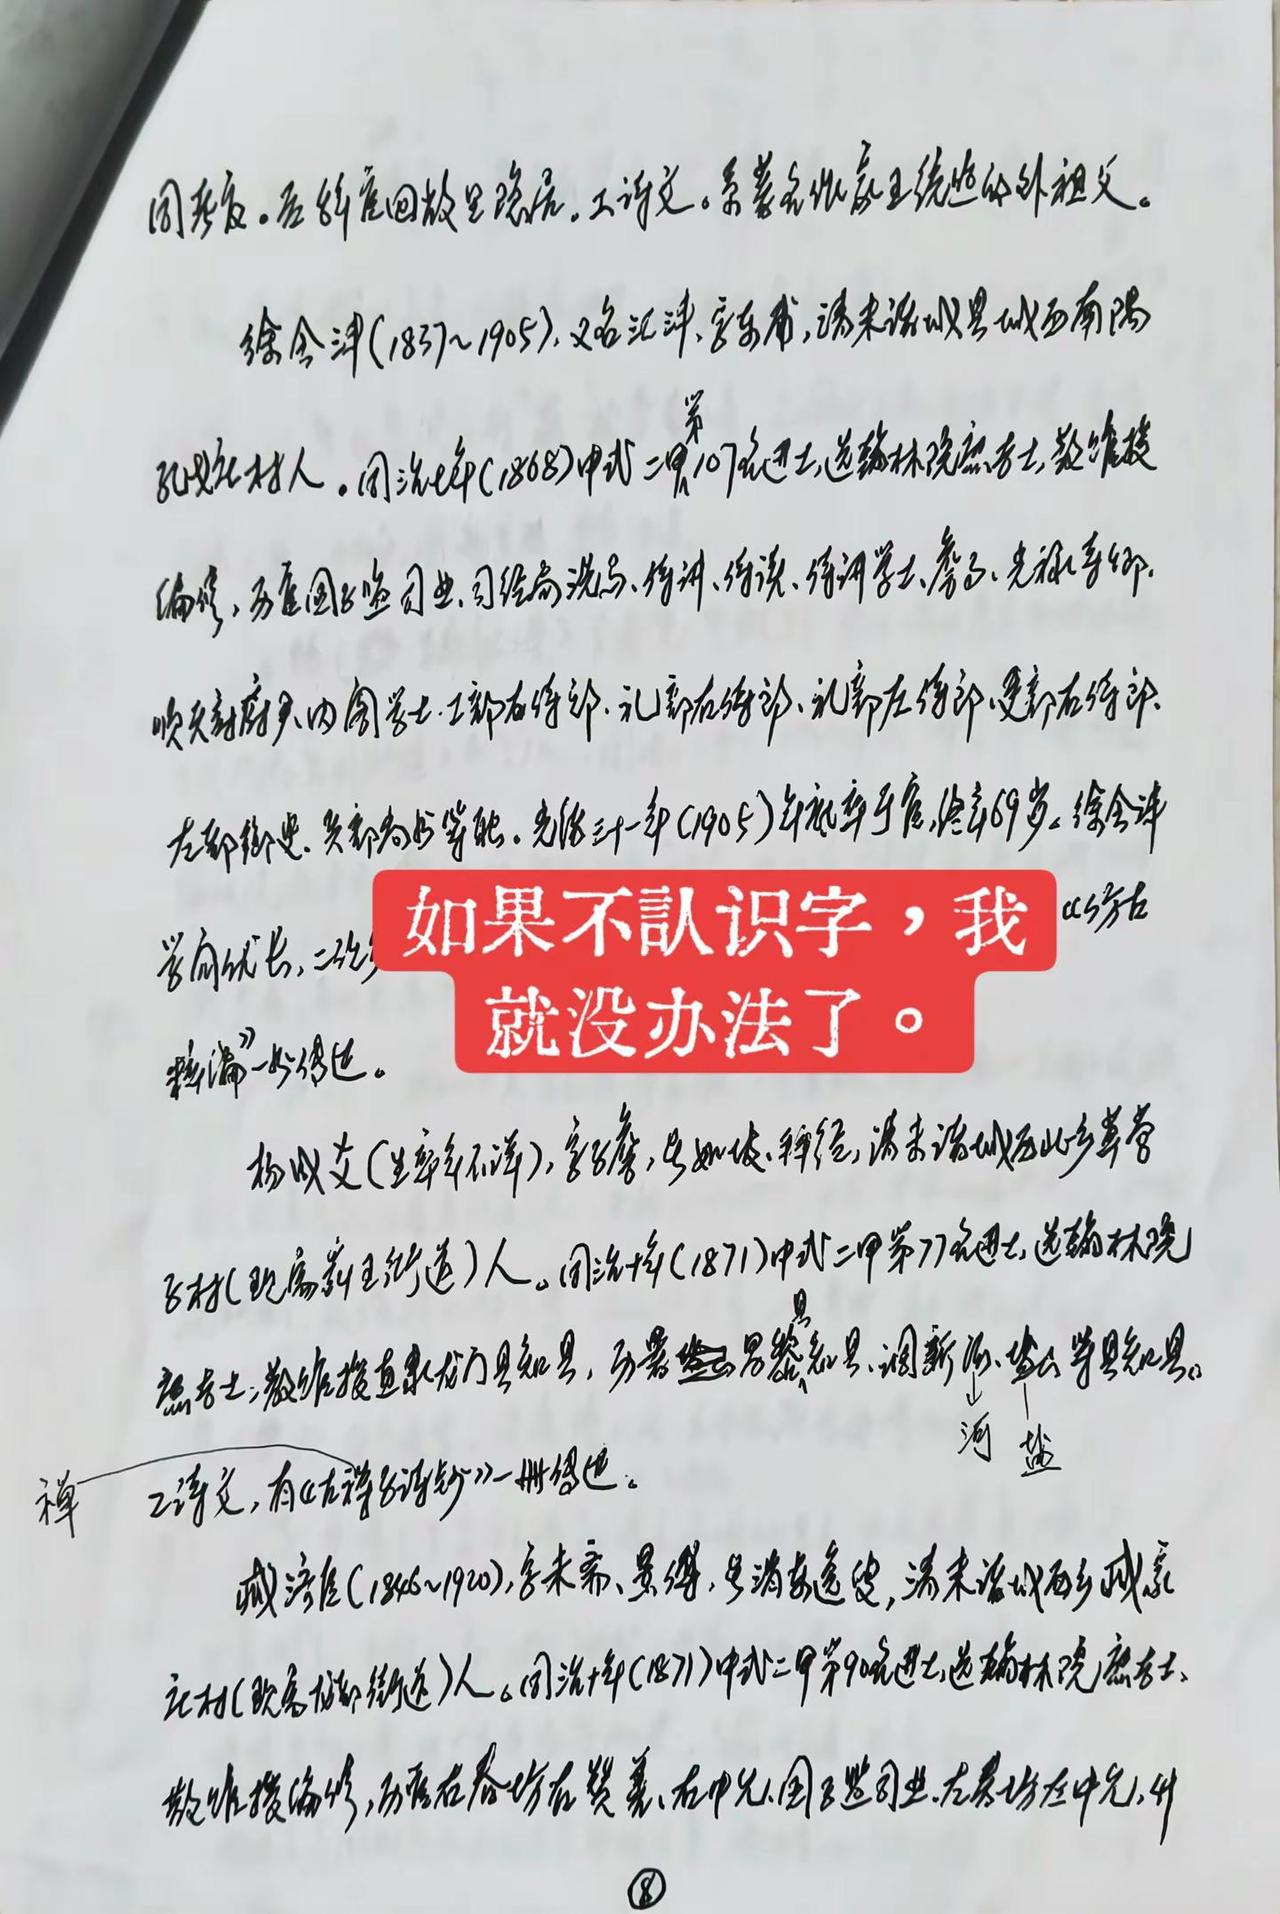 同考官。后辞官回故里隐居。工诗文。系著名作家王统照的外祖父。
徐会沣(1837～1905),又名汇沣、字东甫,清末诸城县城西南隅
社村人。同治七年(1868)中式二甲第107名进士,选翰林院庶吉士,散馆授
编修,历官国子监司业、司经局洗马、侍讲、侍读、侍讲学士、詹事、光禄寺卿、
顺天府府尹、内阁学士、工部右侍郎、礼部右侍郎、礼部左侍郎、吏部右侍郎、
左都御史、兵部尚书等职。光绪三十一年(1905)年病卒于官,终年69岁。徐会沣
学问优长,二次
如果不認识字，我
就没办法了。
粹编》一书传世。
杨成文(生卒年不详),字子詹,号如坡、禅经,清末诸城西北乡葬营
子村(现属新王街道)人。同治十年(1871)中式二甲第77名进士,选翰林院
庶吉士;散馆授直隶龙门县知县,历署 县知县、调新河、盐山等县知县。
河 盐
禅 工诗文,有《古禅子诗钞》一册传世。
臧济臣(1846～1920),字未斋、景傅,号 ,清末诸城西乡臧家
社村(现属龙都街道)人。同治十年(1871)中式二甲第90名进士,选翰林院庶吉士、
散馆授编修,历官右春坊右赞善、右中允、国子监司业、左春坊左中允、升
8